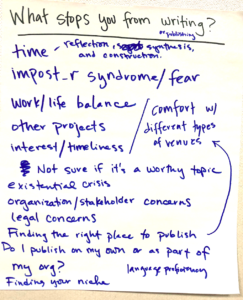 What stops you from writing?
or publishing
time - reflection, synthesis,
and construction.
impost_r syndrome/fear
work/life balance
other projects
interest/timeliness
comfort w/
different types
of venues
Not sure if it's a worthy topic
existential crisis
organization/stakeholder concerns
legal concerns
Finding the right place to publish
Do I publish on my own or as part of
my org?
language proficiency
Finding your niche